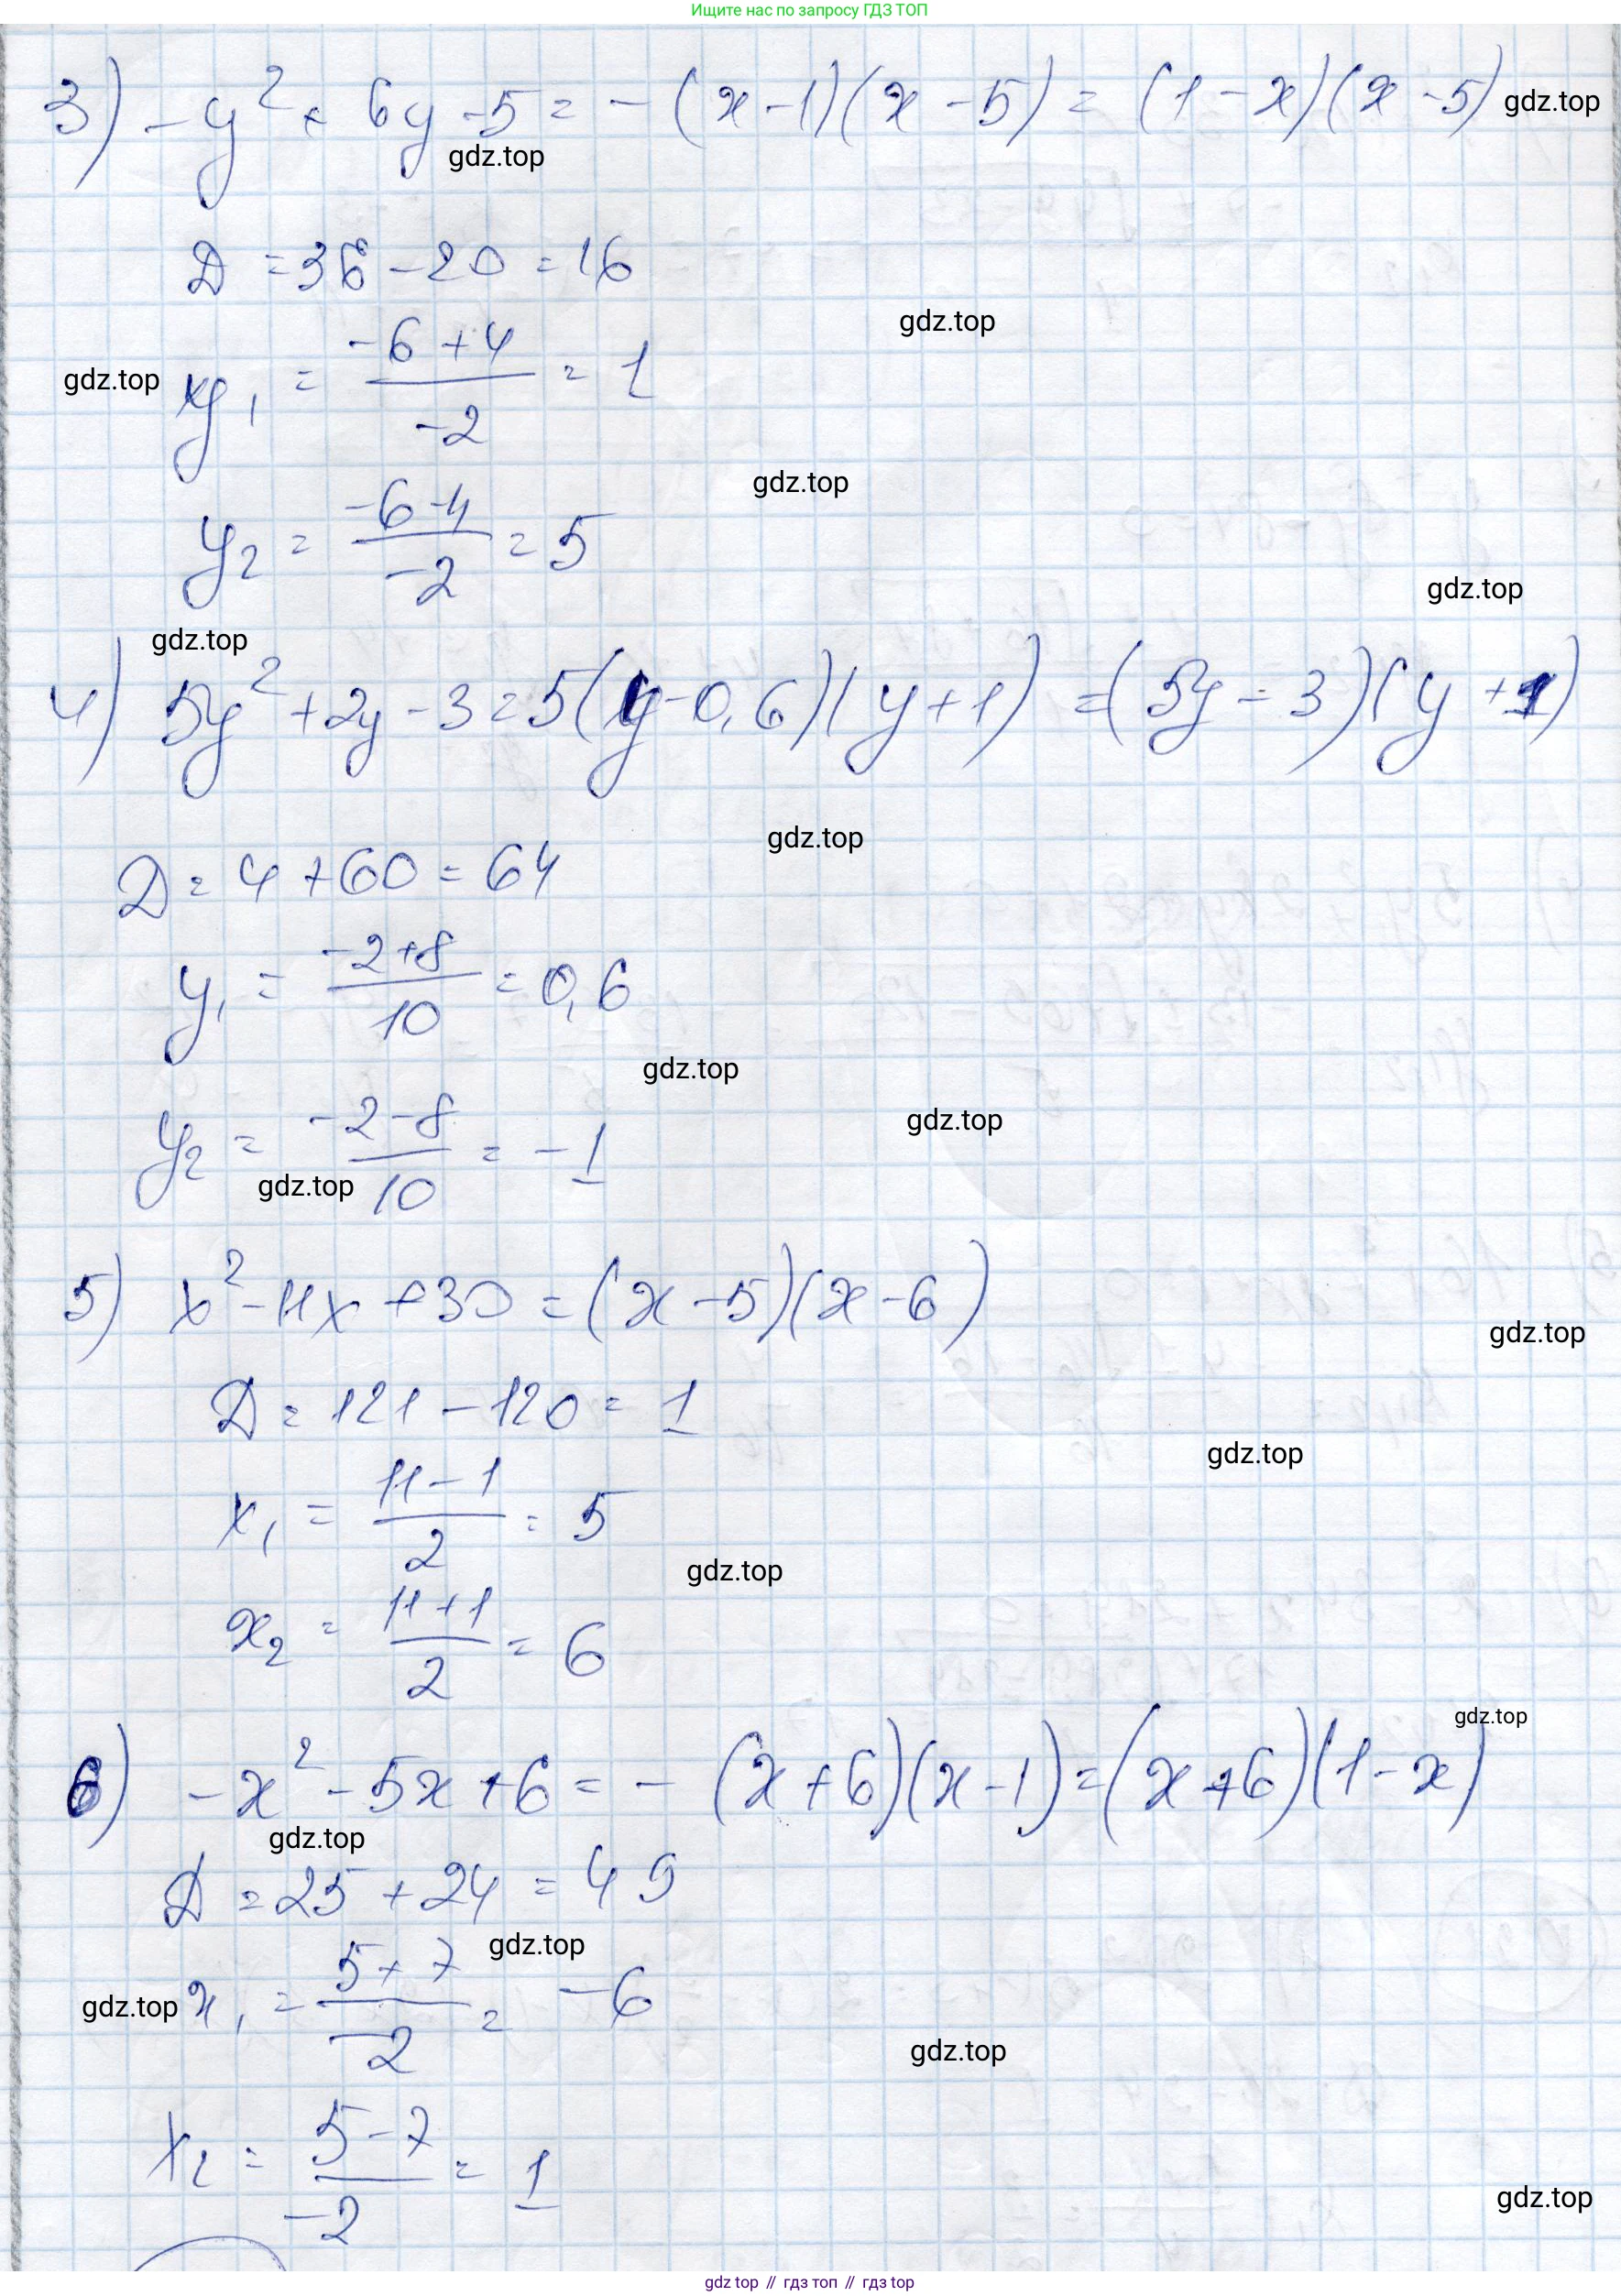 Ищите нас по запросу ГДЗ ТОП
3) -y² + 6y - 5 = -(x - 1)(x - 5) = (1 - x)(x - 5) gdz.top
gdz.top
D = 36 - 20 = 16
gdz.top
gdz.top y₁ = (-6 + 4)/(-2) = 1
gdz.top
y₂ = (-6 - 4)/(-2) = 5
gdz.top
gdz.top
4) 5y² + 2y - 3 = 5(y - 0,6)(y + 1) = (5y - 3)(y + 1)
gdz.top
D = 4 + 60 = 64
y₁ = (-2 + 8)/10 = 0,6
gdz.top
gdz.top
y₂ = (-2 - 8)/10 = -1
gdz.top
5) x² - 11x + 30 = (x - 5)(x - 6)
gdz.top
D = 121 - 120 = 1
gdz.top
x₁ = (11 - 1)/2 = 5
gdz.top
x₂ = (11 + 1)/2 = 6
gdz.top
6) -x² - 5x + 6 = -(x + 6)(x - 1) = (x + 6)(1 - x)
gdz.top
D = 25 + 24 = 49
gdz.top
gdz.top x₁ = (5 + 7)/(-2) = -6
gdz.top
x₂ = (5 - 7)/(-2) = 1
gdz.top
gdz top // гдз топ // gdz top